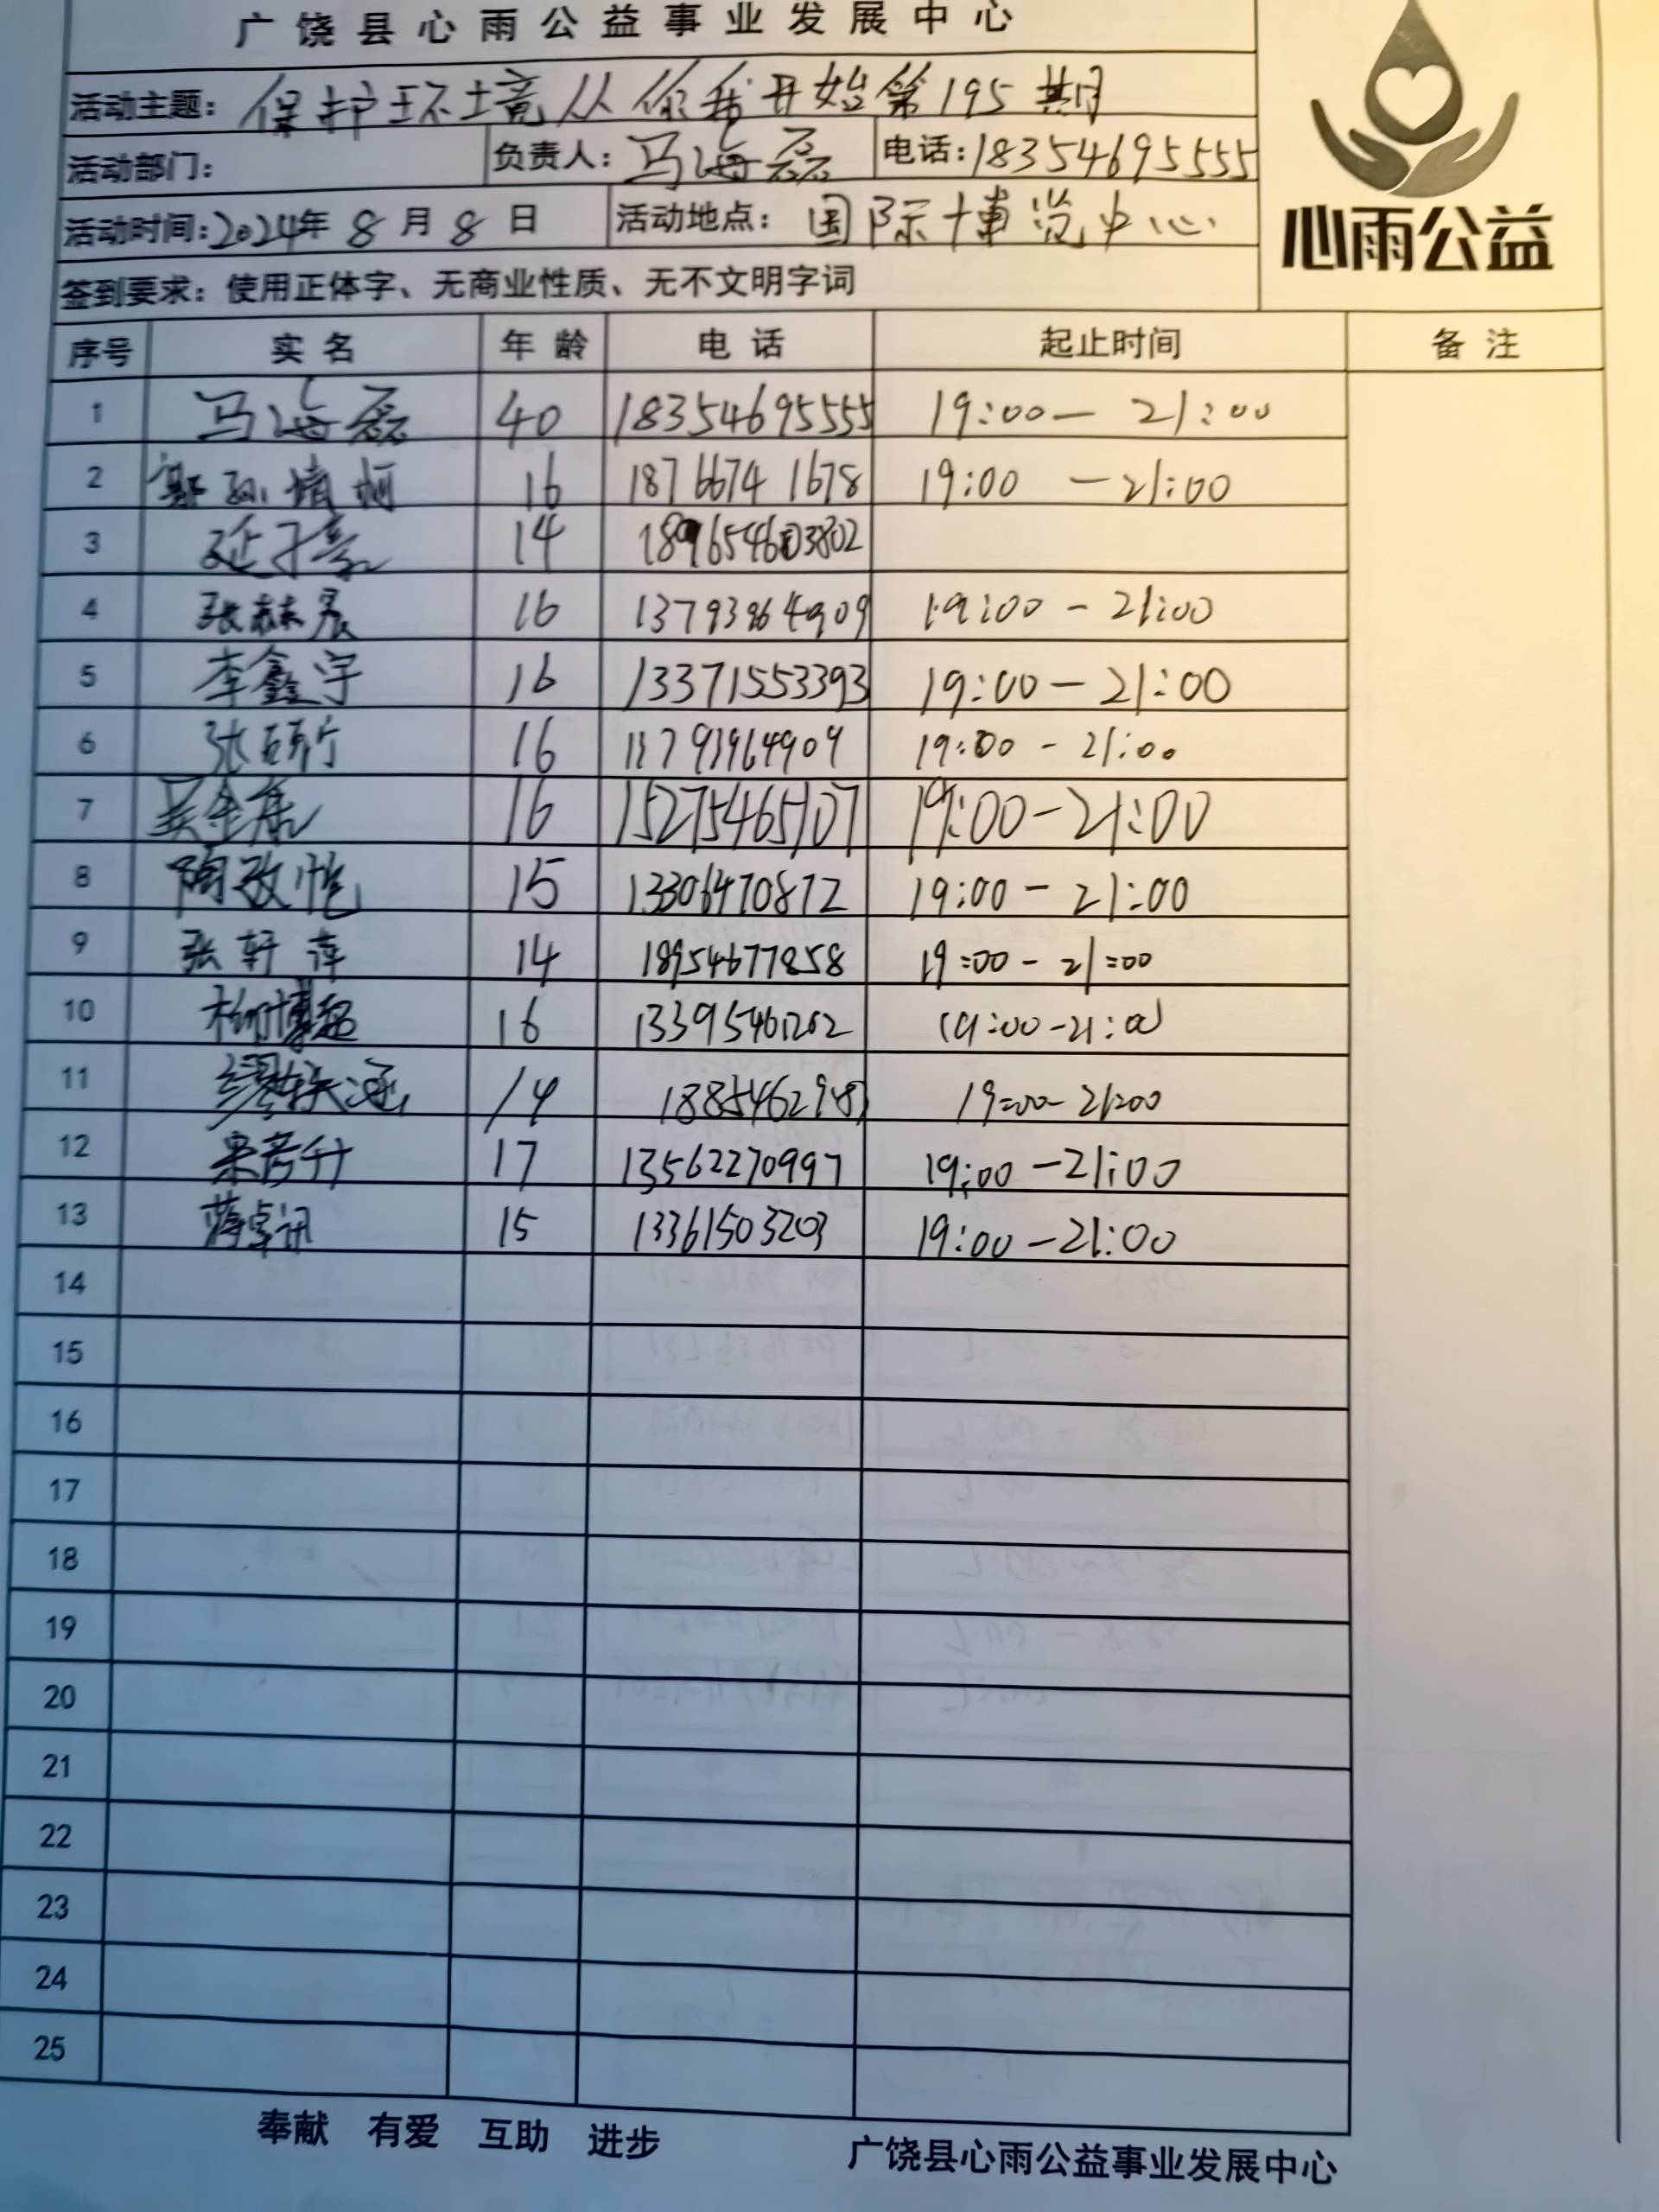 广饶县心雨公益事业发展中心
活动主题：保护环境从你我开始第195期
活动部门： 负责人：马海磊 电话：18354695555
活动时间：2024年8月8日 活动地点：国际博览中心
心雨公益
签到要求：使用正体字、无商业性质、无不文明字词
序号 实名 年龄 电话 起止时间 备注
1 马海磊 40 18354695555 19:00—21:00
2 16 18766741678 19:00—21:00
3 14
4 张赫宸 16 19:00-21:00
5 李鑫宇 16 13371553393 19:00-21:00
6 16 19:00-21:00
7 16 15275465107 19:00-21:00
8 陶政恺 15 13306470872 19:00-21:00
9 张轩萍 14 18954677858 19:00-21:00
10 柳博超 16 13395461202 19:00-21:00
11 缪轶涵 14 19:00-21:00
12 17 13562270997 19:00-21:00
13 蒋卓讯 15 13361503203 19:00-21:00
14
15
16
17
18
19
20
21
22
23
24
25
奉献 有爱 互助 进步 广饶县心雨公益事业发展中心